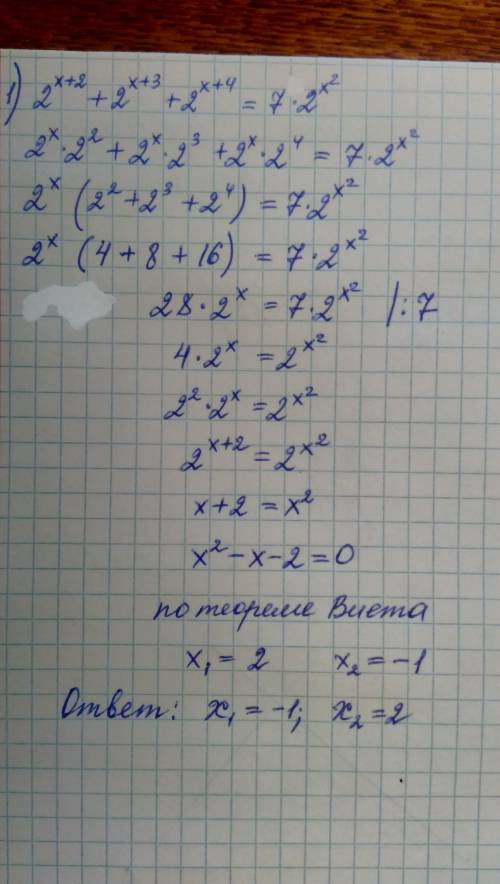 1) 2^(x+2) + 2^(x+3) + 2^(x+4) = 7·2^(x²)
2^x·2² + 2^x·2³ + 2^x·2⁴ = 7·2^(x²)
2^x (2² + 2³ + 2⁴) = 7·2^(x²)
2^x (4 + 8 + 16) = 7·2^(x²)
28·2^x = 7·2^(x²) /:7
4·2^x = 2^(x²)
2²·2^x = 2^(x²)
2^(x+2) = 2^(x²)
x+2 = x²
x² − x − 2 = 0
по теореме Виета
x₁ = 2 x₂ = −1
Ответ: x₁ = −1; x₂ = 2